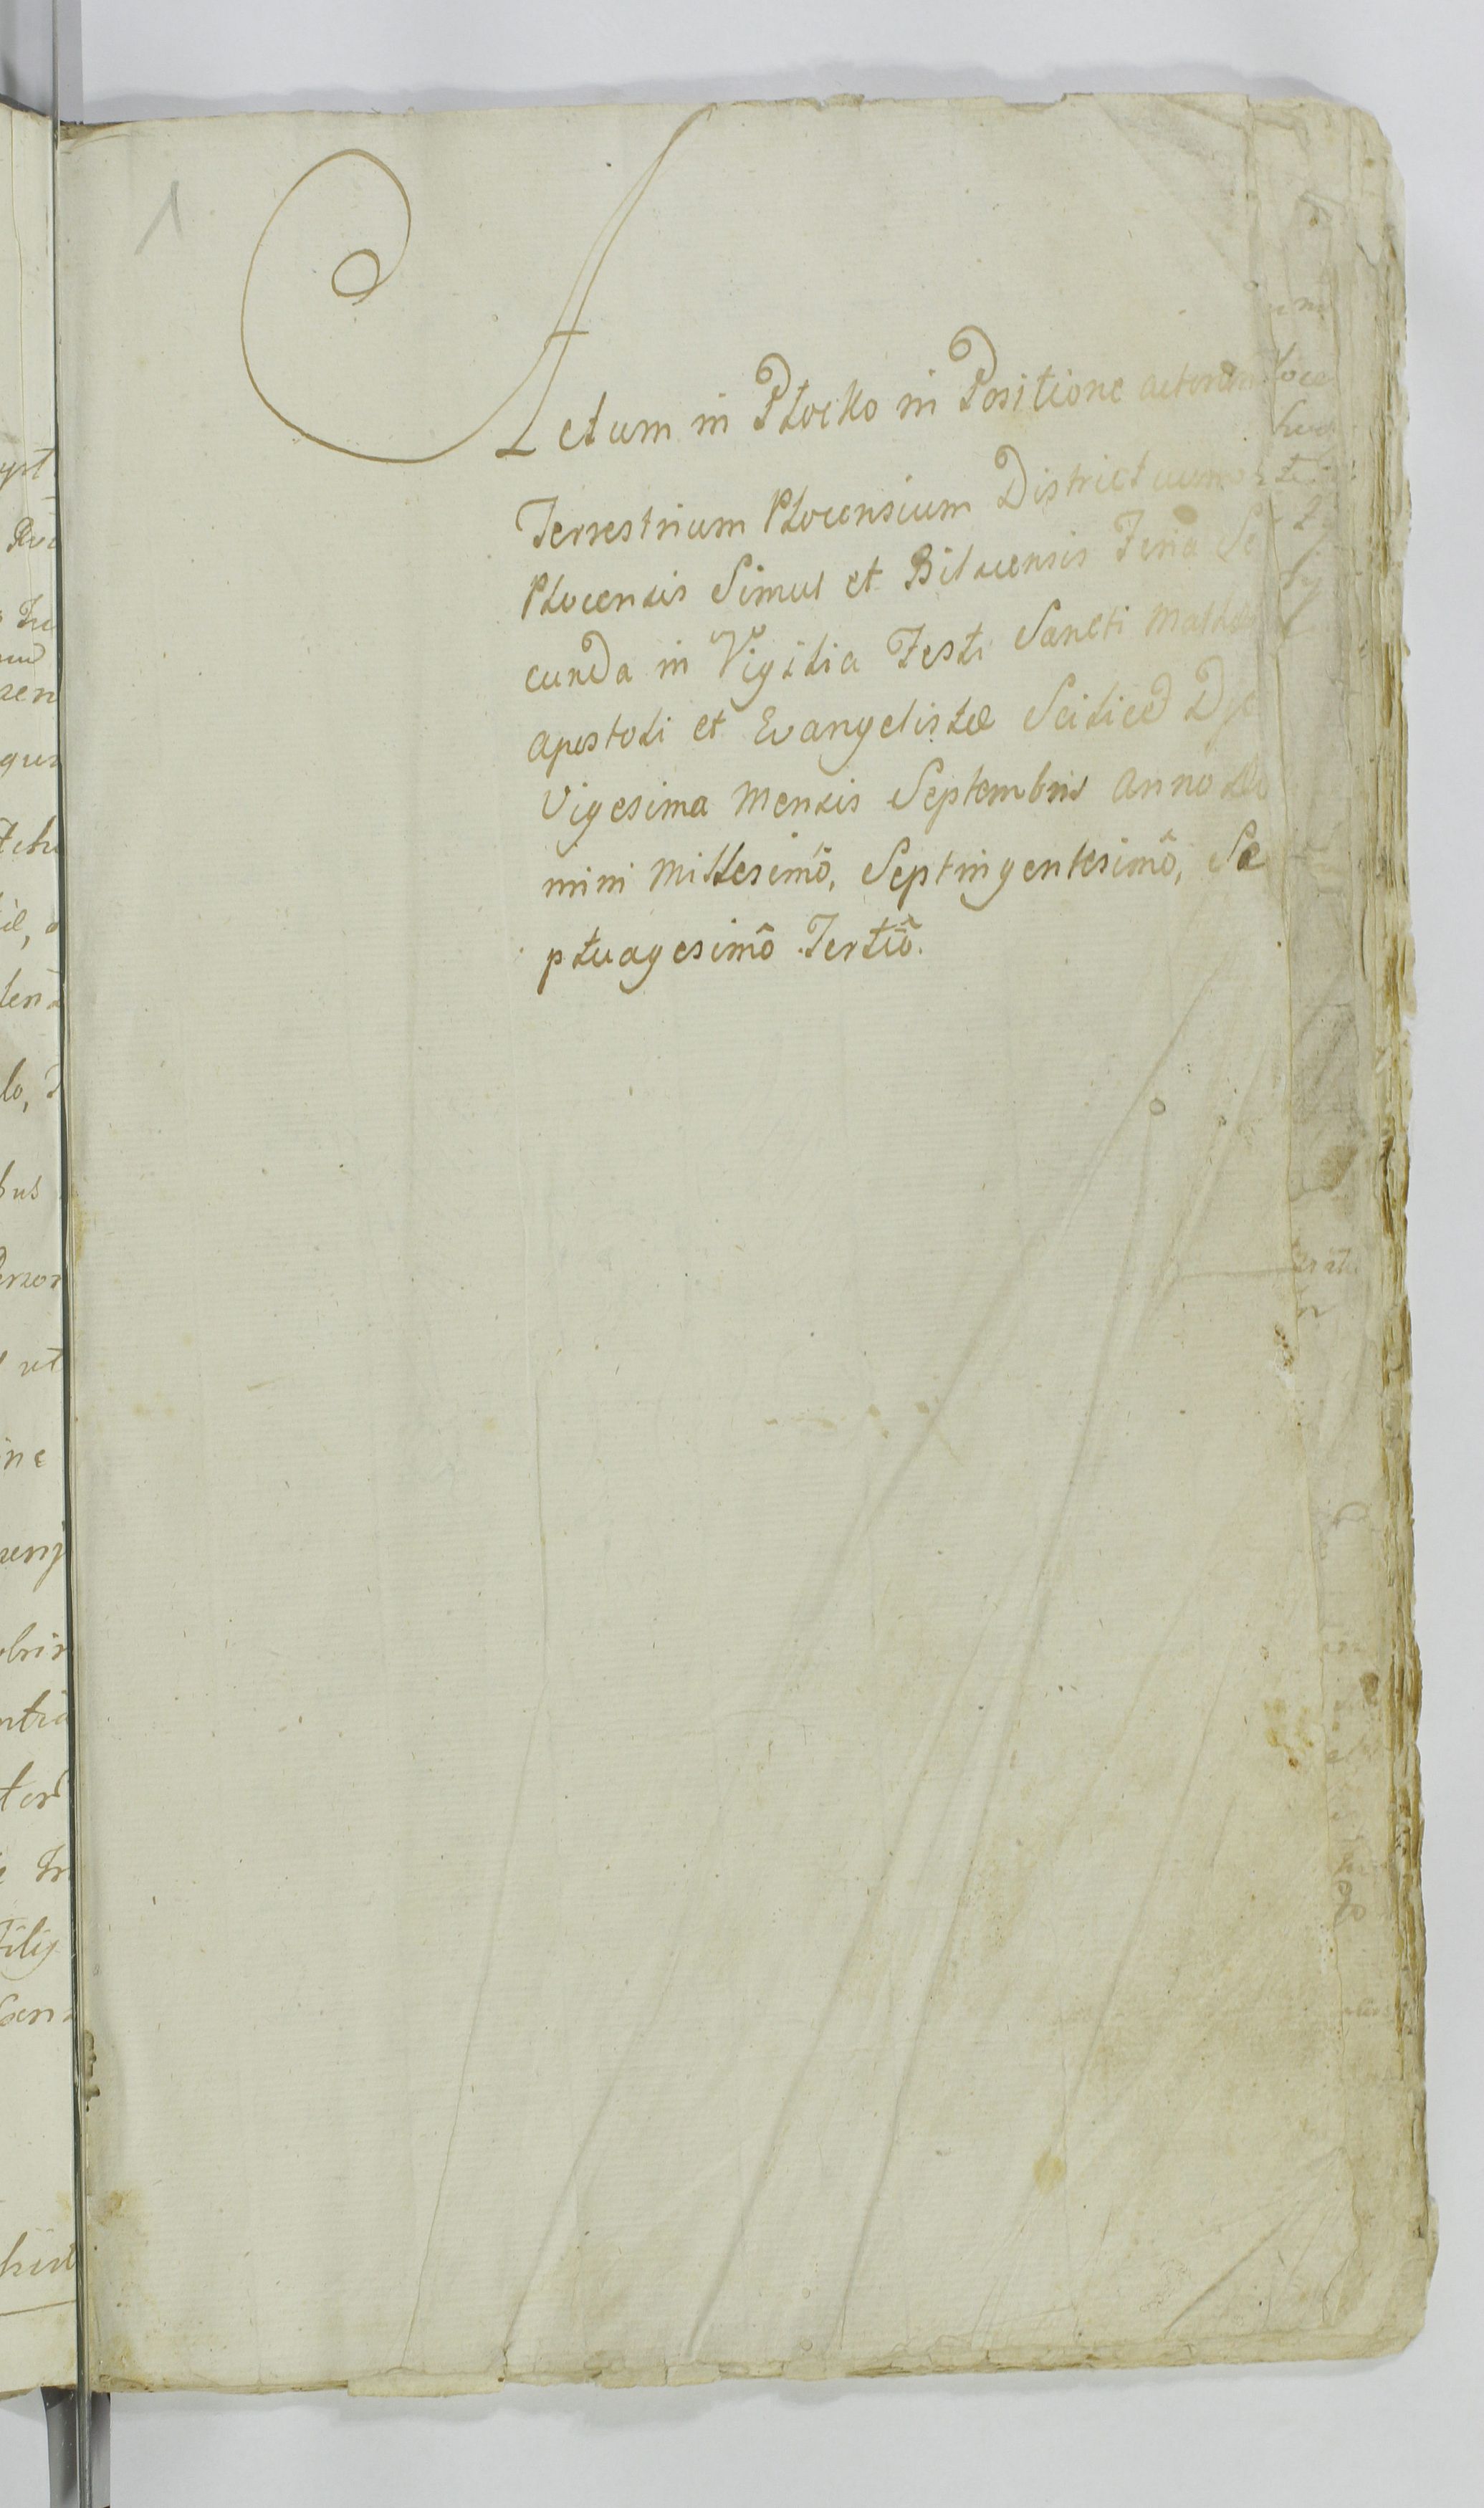 1
Actum in Płocko in Positione actorum
Terrestrium Plocensium Districtuum
Plocensis Simul et Bilscensis Feria Se
cunda in Vigilia Festi Sancti Matthæi
Apostoli et Evangelistæ Scilicet Dye
Vigesima Mensis Septembris Anno Do
mini Millesimô, Septingentesimô, Se
ptuagesimô Tertiô.